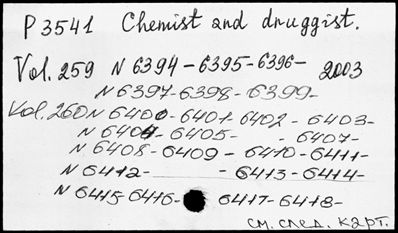 P3541 Chemist and druggist.
Vol. 259 N 6394-6395-6396- 2003
N 6397-6398-6399-
Vol. 260 N 6400-6401-6402-6403-
N 6404-6405- -6407-
N 6408-6409-6410-6411-
N 6412- -6413-6414-
N 6415-6416- 6417-6418-
см. след. карт.